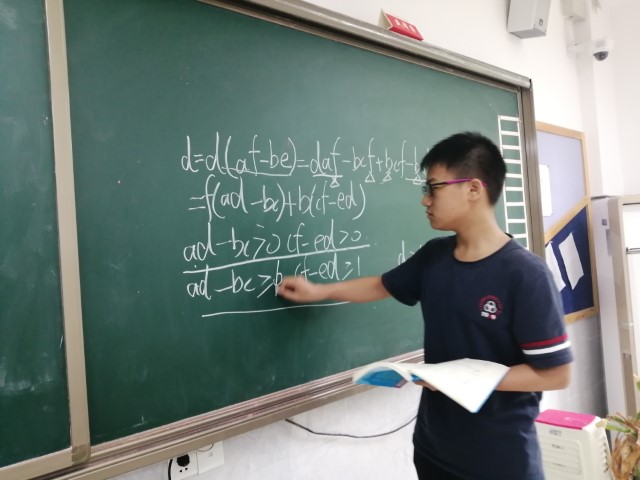 d=d(af-be)=daf-bcf+bcf-b
=f(ad-bc)+b(cf-ed)
ad-bc>0 cf-ed>0
ad-bc≥ cf-ed≥1
d=